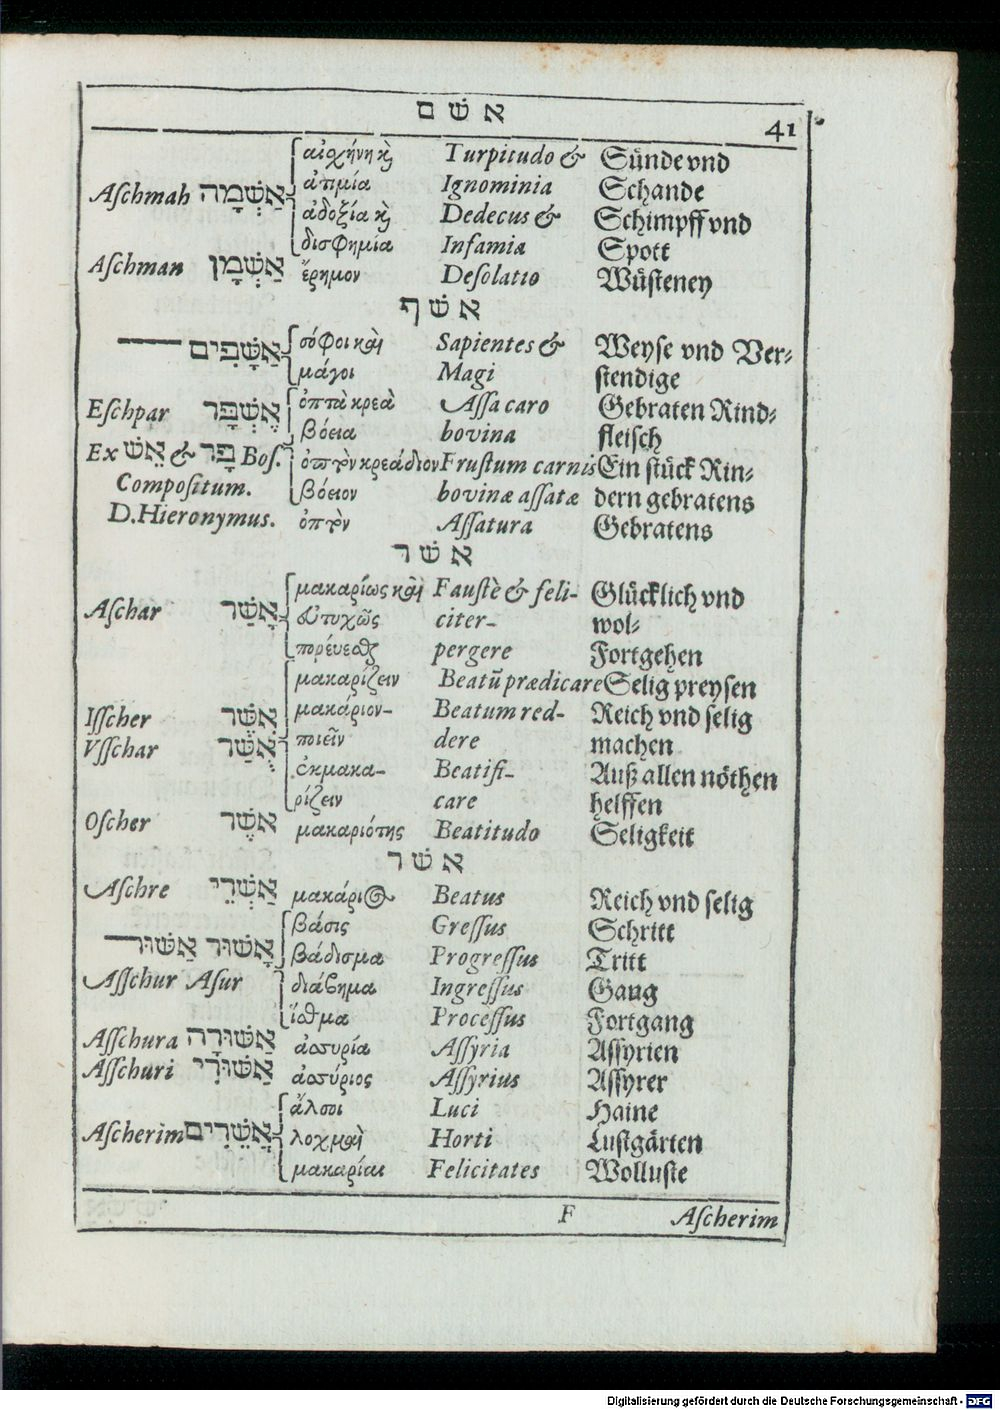 אשם
41
αἰσχύνη κ̀ Turpitudo & Sünde vnd
Aſchmah אַשְׁמָה ἀτιμία Ignominia Schande
ἀδοξία κ̀ Dedecus & Schimpff vnd
δυσφημία Infamia Spott
Aſchman אַשְׁמָן ἔρημον Deſolatio Wüſteney
אשף
σόφοι καὶ Sapientes & Weyſe vnd Ver-
אַשָּׁפִים μάγοι Magi ſtendige
Eſchpar אֶשְׁפָּר ὀπτὰ κρεὰ Aſſa caro Gebraten Rind-
βόεια bovina fleiſch
Ex אֵשׁ & פָּר Boſ. ὀπτὸν κρεάδιον Fruſtum carnis Ein ſtück Rin-
Compoſitum. βόειον bovinæ aſſatæ dern gebratens
D. Hieronymus. ὀπτὸν Aſſatura Gebratens
אשר
μακαρίως καὶ Fauſtè & feli- Glücklich vnd
Aſchar אָשַׁר εὐτυχῶς citer- wol-
πορέυεσθ pergere Fortgehen
μακαρίζειν Beatũ prædicare Selig preyſen
Iſſcher אִשֵּׁר μακάριον- Beatum red- Reich vnd ſelig
Vſſchar אֻשַּׁר ποιεῖν dere machen
ἐκμακα- Beatifi- Auß allen nöthen
ρίζειν care helffen
Oſcher אֹשֶׁר μακαριότης Beatitudo Seligkeit
אשר
Aſchre אַשְׁרֵי μακάριος Beatus Reich vnd ſelig
βάσις Greſſus Schritt
אָשׁוּר אַשּׁוּר βάδισμα Progreſſus Tritt
Aſſchur Aſur διάβημα Ingreſſus Gang
ἴσθμα Proceſſus Fortgang
Aſſchura אַשּׁוּרָה ἀσσυρία Aſſyria Aſſyrien
Aſſchuri אַשּׁוּרִי ἀσσύριος Aſſyrius Aſſyrer
ἄλσοι Luci Haine
Aſcherim אֲשֵׁרִים λοχμαὶ Horti Luſtgärten
μακαρίαι Felicitates Wolluſte
F Aſcherim
Digitalisierung gefördert durch die Deutsche Forschungsgemeinschaft - DFG